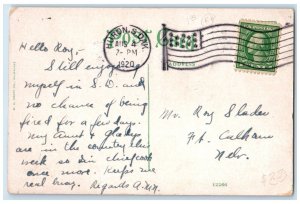 HURON, S. DAK.
AUG 4
7-PM
1920
Hello Roy,
Still enjoying
myself in S. D. and
no chance of being
fired for a few days.
My Aunt & Gladys
are in the country this
week so am chief cook
once more. Keeps me
real busy. Regards
Mr. Roy
Ft. Calhoun
Nebr.